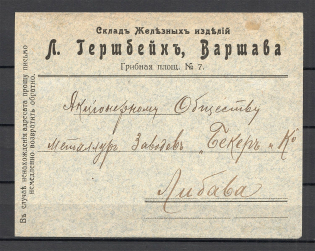 Складъ Желѣзныхъ издѣлій
Л. Гершбейнъ, Варшава
Грибная площ. № 7.
Акціонерному Обществу
Металлург Заводовъ "Бекеръ и Ко
Либава
Въ случаѣ ненахожденія адресата прошу письмо
немедленно возвратить обратно.